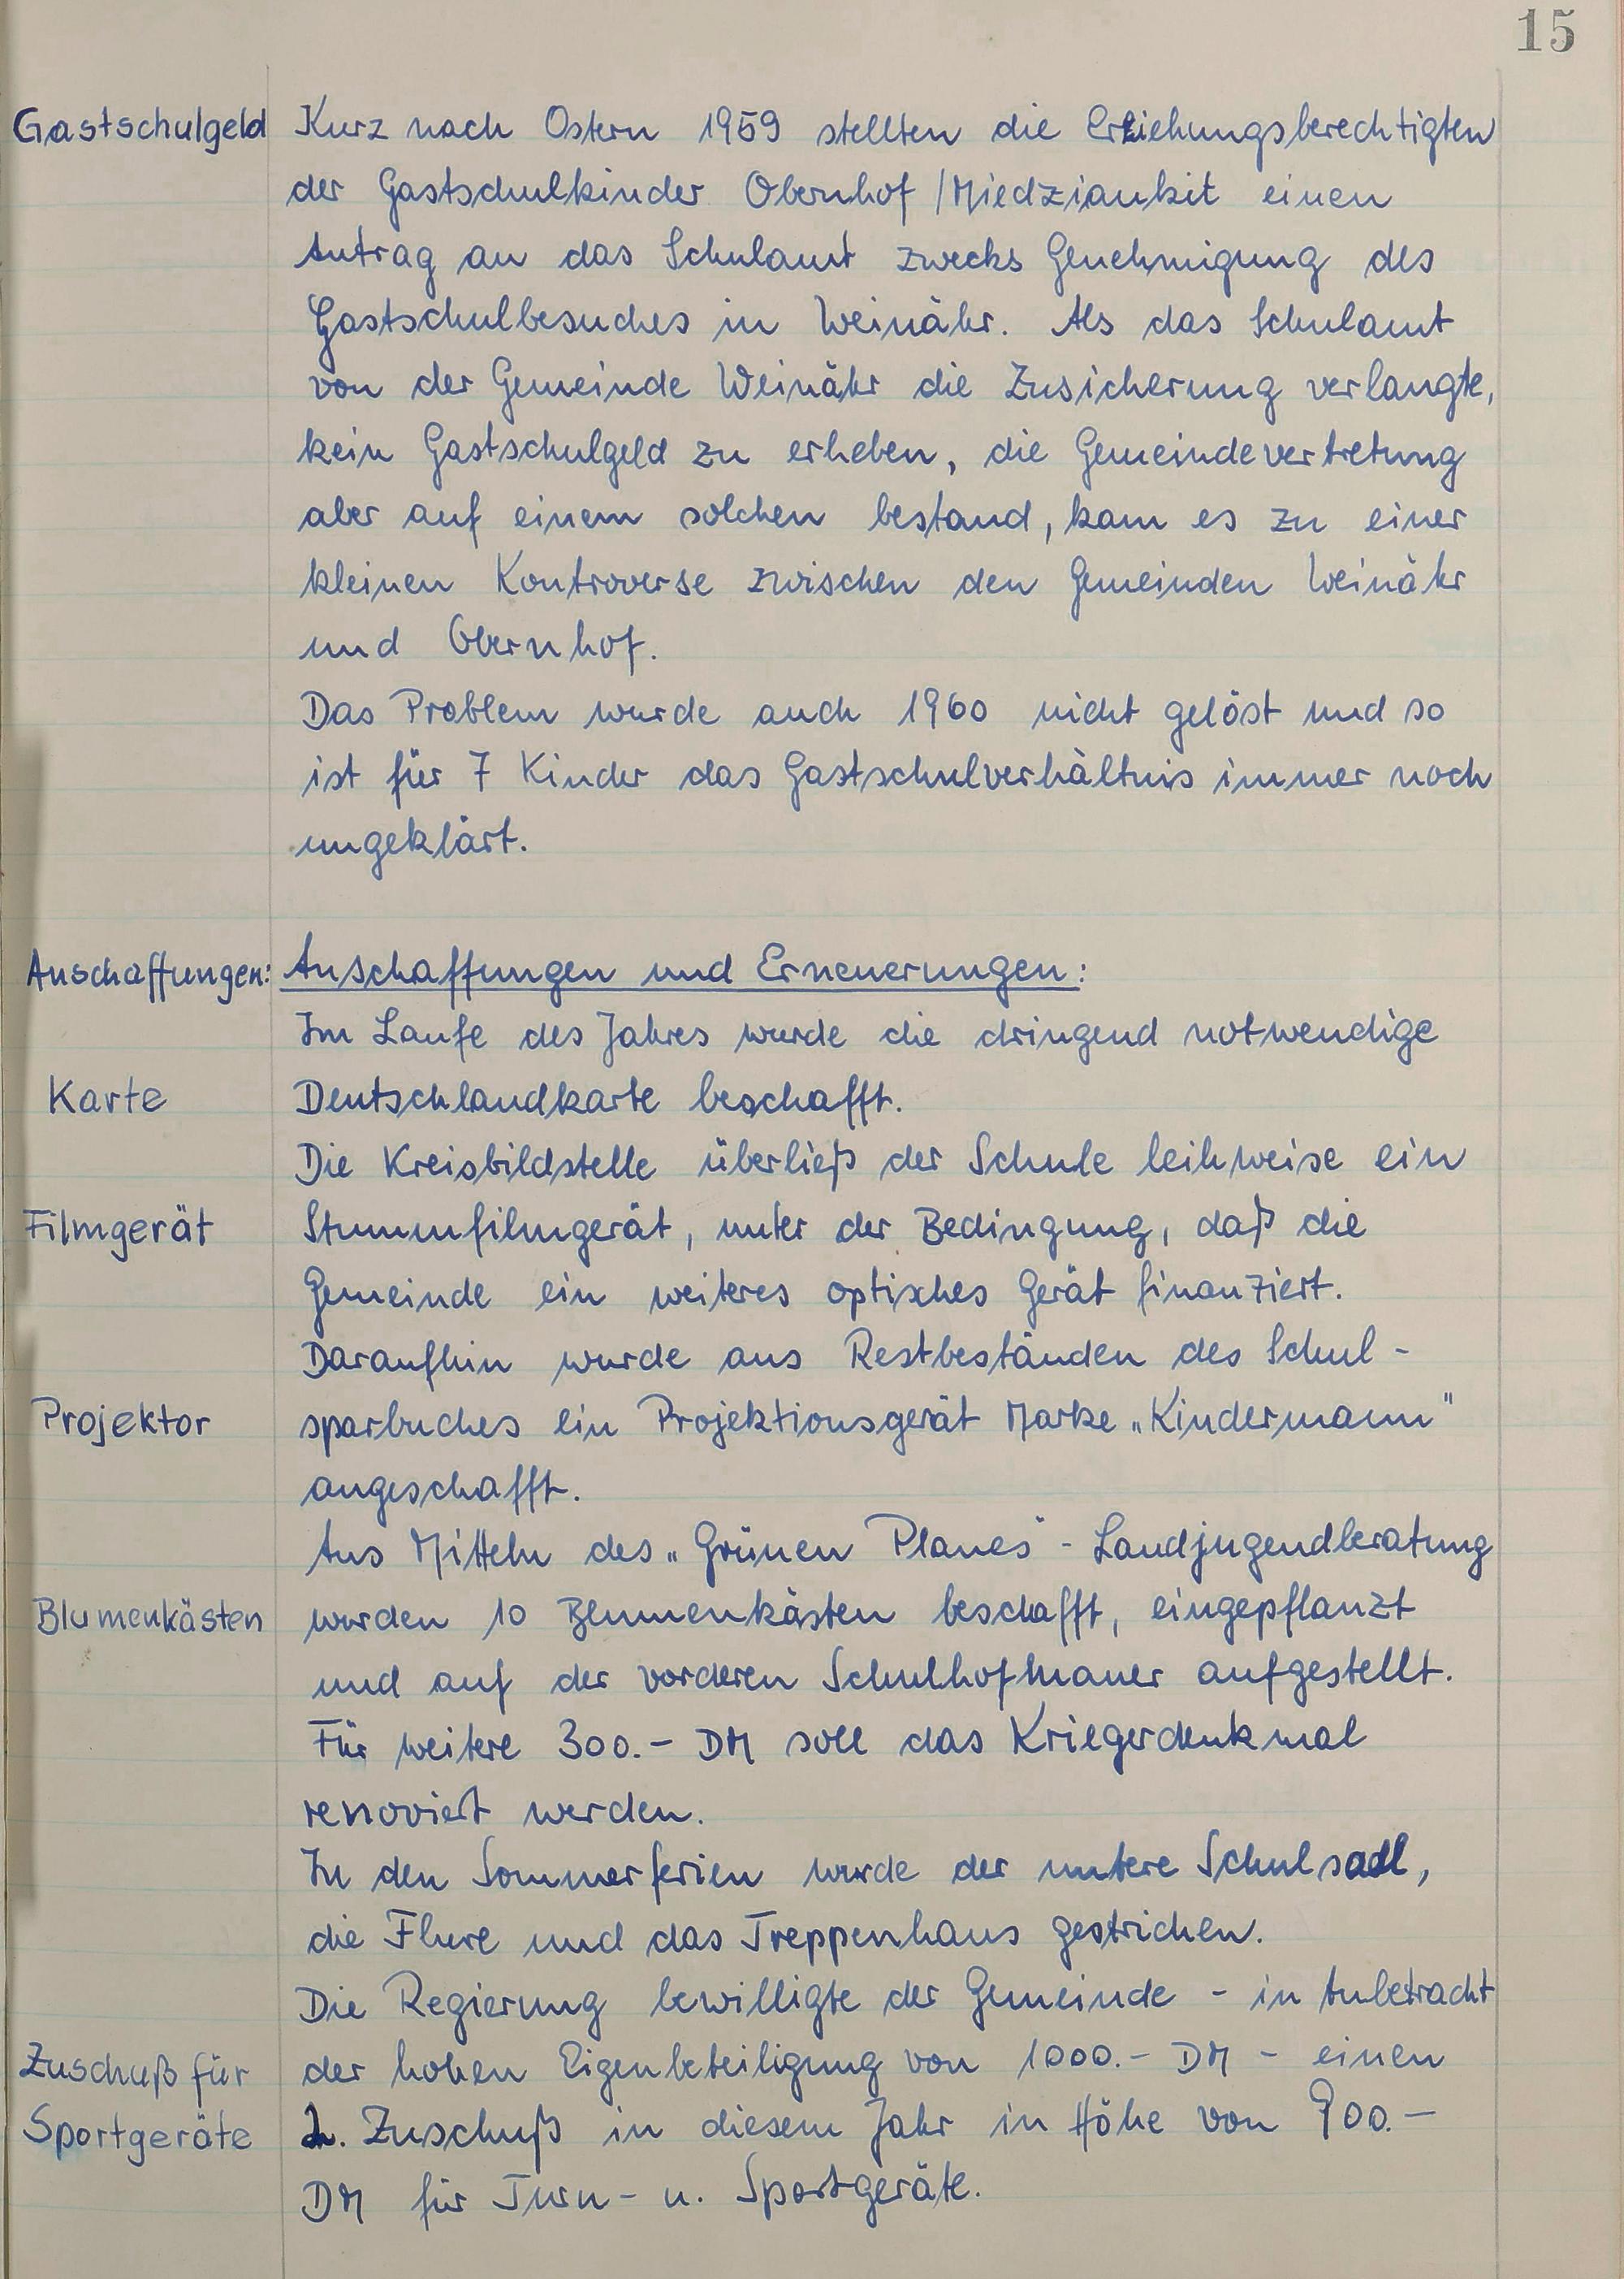 15
Gastschulgeld Kurz nach Ostern 1959 stellten die Erziehungsberechtigten
der Gastschulkinder Obernhof /Miedziankit einen
Antrag an das Schulamt zwecks Genehmigung des
Gastschulbesuches in Weinähr. Als das Schulamt
von der Gemeinde Weinähr die Zusicherung verlangte,
kein Gastschulgeld zu erheben, die Gemeindevertretung
aber auf einem solchen bestand, kam es zu einer
kleinen Kontroverse zwischen den Gemeinden Weinähr
und Obernhof.
Das Problem wurde auch 1960 nicht gelöst und so
ist für 7 Kinder das Gastschulverhältnis immer noch
ungeklärt.
Anschaffungen: Anschaffungen und Erneuerungen:
Im Laufe des Jahres wurde die dringend notwendige
Karte Deutschlandkarte beschafft.
Die Kreisbildstelle überließ der Schule leihweise ein
Filmgerät Stummfilmgerät, unter der Bedingung, daß die
Gemeinde ein weiteres optisches Gerät finanziert.
Daraufhin wurde aus Restbeständen des Schul-
Projektor sparbuches ein Projektionsgerät Marke „Kindermann"
angeschafft.
Aus Mitteln des „Grünen Planes" - Landjugendberatung
Blumenkästen wurden 10 Blumenkästen beschafft, eingepflanzt
und auf der vorderen Schulhofmauer aufgestellt.
Für weitere 300.- DM soll das Kriegerdenkmal
renoviert werden.
In den Sommerferien wurde der untere Schulsaal,
die Flure und das Treppenhaus gestrichen.
Die Regierung bewilligte der Gemeinde - in Anbetracht
Zuschuß für der hohen Eigenbeteiligung von 1000.- DM - einen
Sportgeräte 2. Zuschuß in diesem Jahr in Höhe von 900.-
DM für Turn- u. Sportgeräte.